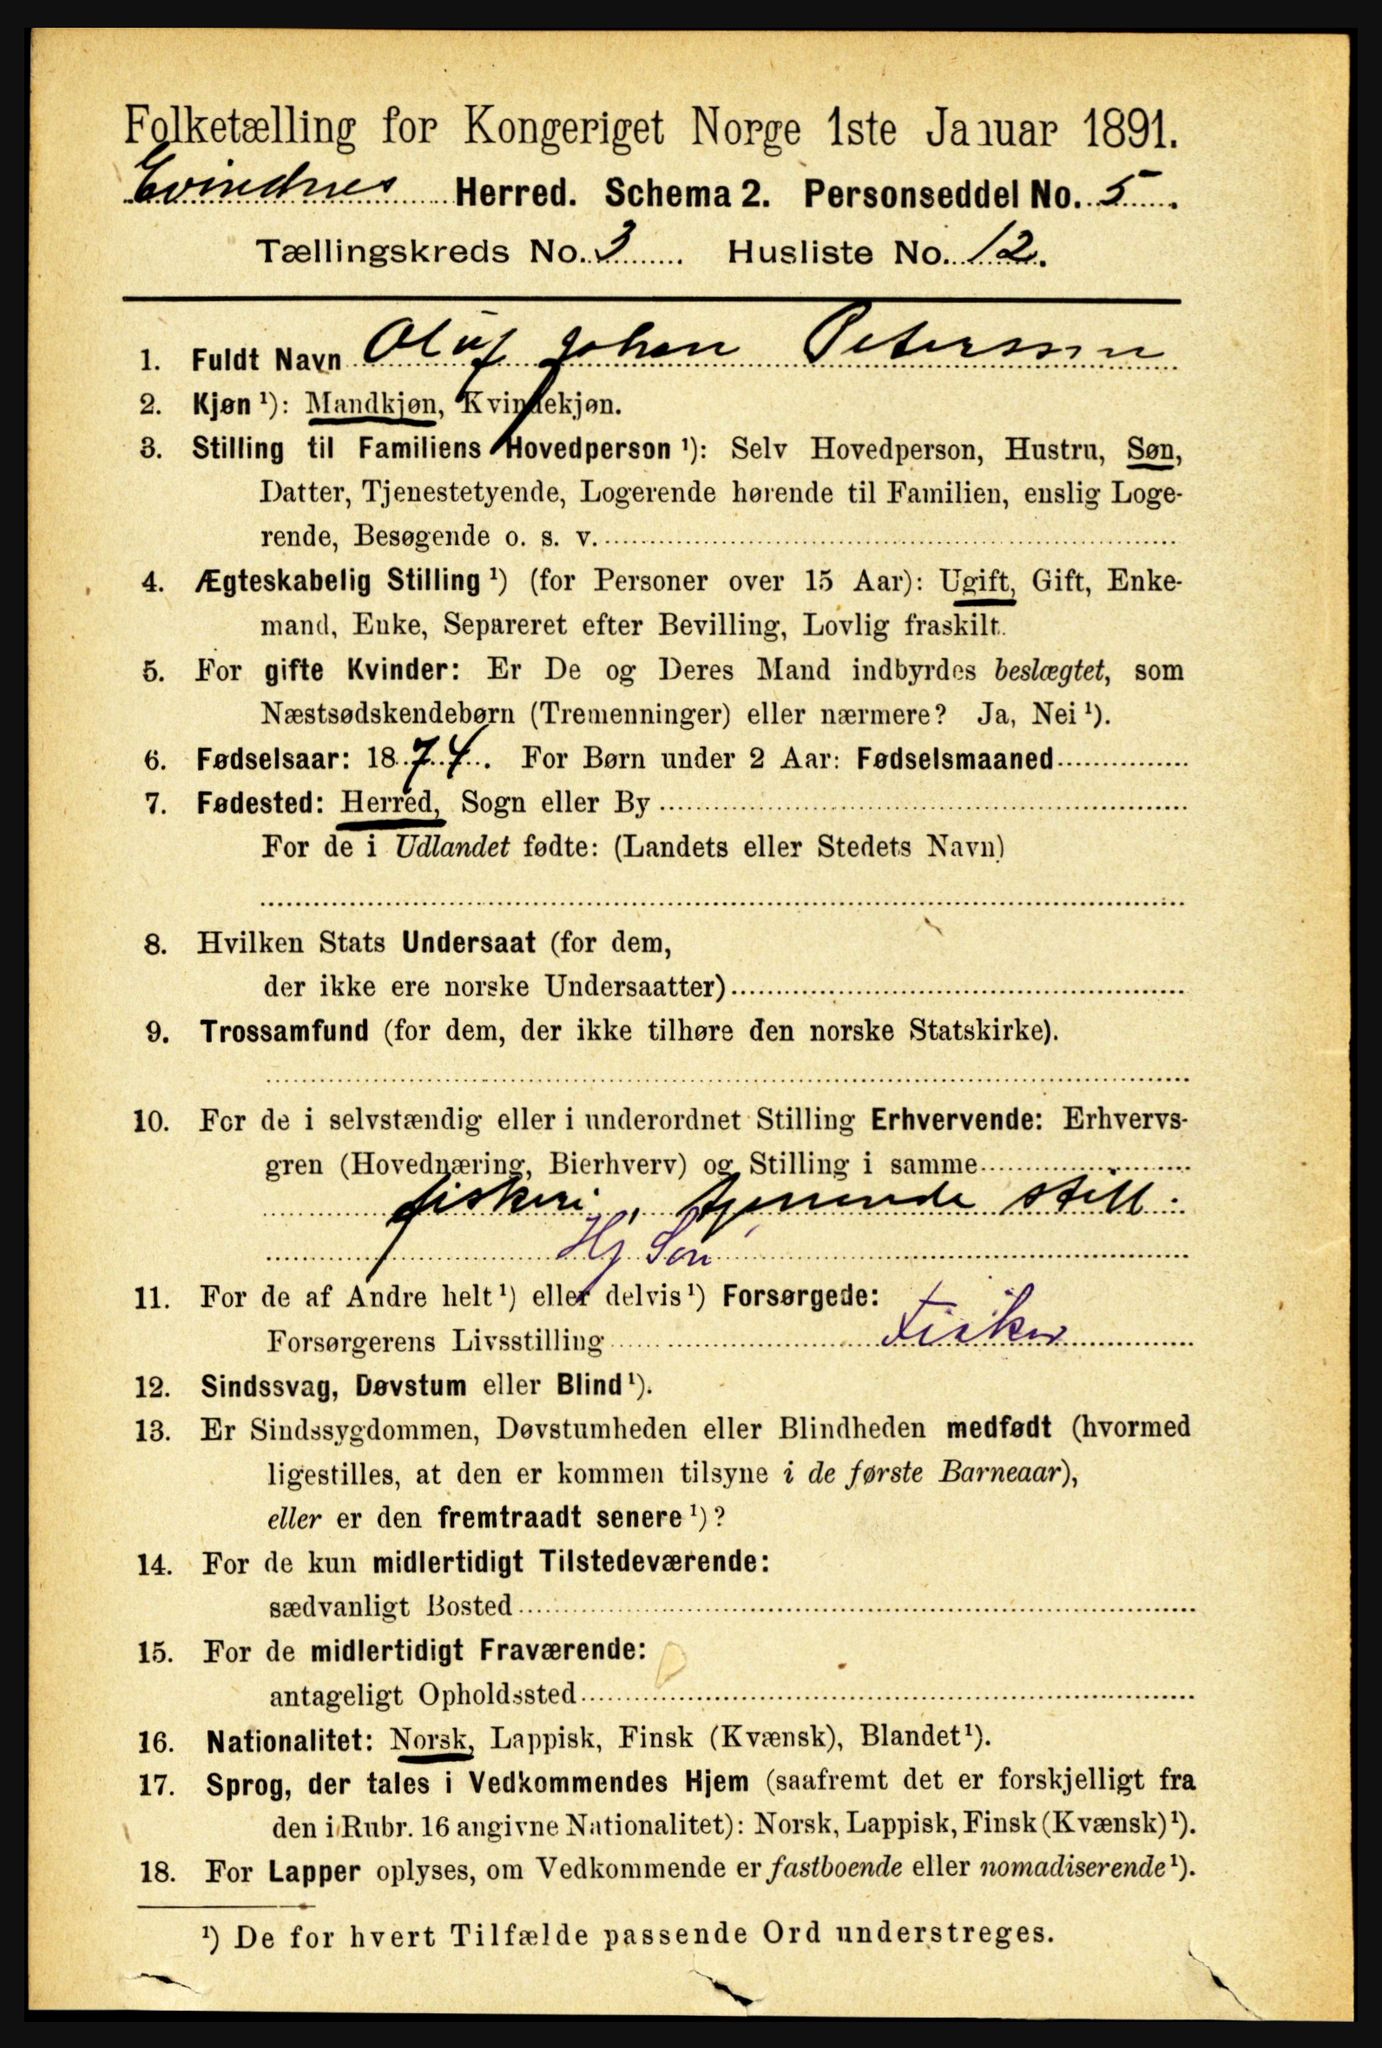 Folketælling for Kongeriget Norge 1ste Januar 1891.
Evindnes Herred. Schema 2. Personseddel No. 5.
Tællingskreds No. 3. Husliste No. 12.
1. Fuldt Navn Oluf Johan Peterssen
2. Kjøn ¹): Mandkjøn, Kvindekjøn.
3. Stilling til Familiens Hovedperson ¹): Selv Hovedperson, Hustru, Søn,
Datter, Tjenestetyende, Logerende hørende til Familien, enslig Loge-
rende, Besøgende o. s. v.
4. Ægteskabelig Stilling ¹) (for Personer over 15 Aar): Ugift, Gift, Enke-
mand, Enke, Separeret efter Bevilling, Lovlig fraskilt.
5. For gifte Kvinder: Er De og Deres Mand indbyrdes beslægtet, som
Næstsødskendebørn (Tremenninger) eller nærmere? Ja, Nei ¹).
6. Fødselsaar: 1874. For Børn under 2 Aar: Fødselsmaaned
7. Fødested: Herred, Sogn eller By
For de i Udlandet fødte: (Landets eller Stedets Navn)
8. Hvilken Stats Undersaat (for dem,
der ikke ere norske Undersaatter)
9. Trossamfund (for dem, der ikke tilhøre den norske Statskirke).
10. For de i selvstændig eller i underordnet Stilling Erhvervende: Erhvervs-
gren (Hovednæring, Bierhverv) og Stilling i samme
fiskeri, tjenende still.
Hj Søn
11. For de af Andre helt ¹) eller delvis ¹) Forsørgede:
Forsørgerens Livsstilling Fisker
12. Sindssvag, Døvstum eller Blind ¹).
13. Er Sindssygdommen, Døvstumheden eller Blindheden medfødt (hvormed
ligestilles, at den er kommen tilsyne i de første Barneaar),
eller er den fremtraadt senere ¹)?
14. For de kun midlertidigt Tilstedeværende:
sædvanligt Bosted
15. For de midlertidigt Fraværende:
antageligt Opholdssted
16. Nationalitet: Norsk, Lappisk, Finsk (Kvænsk), Blandet ¹).
17. Sprog, der tales i Vedkommendes Hjem (saafremt det er forskjelligt fra
den i Rubr. 16 angivne Nationalitet): Norsk, Lappisk, Finsk (Kvænsk) ¹).
18. For Lapper oplyses, om Vedkommende er fastboende eller nomadiserende ¹).
¹) De for hvert Tilfælde passende Ord understreges.